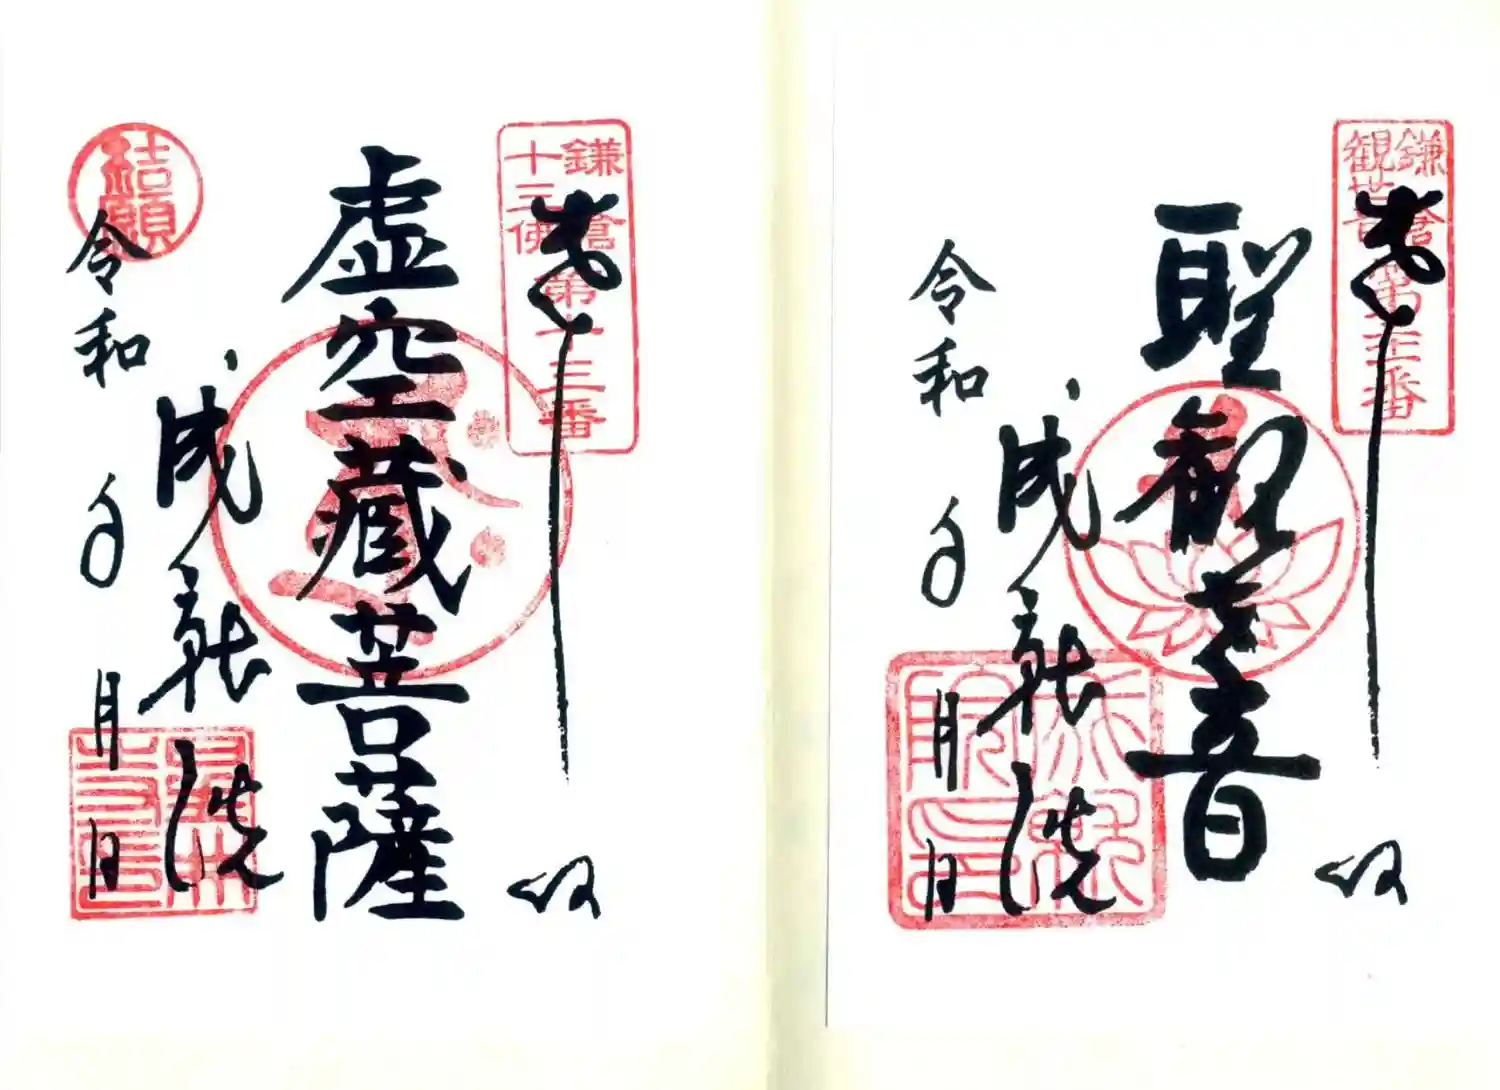 鎌倉
観世音
第三十二番
奉拝
聖観世音
成就院
令和 年 月 日
鎌倉
十三佛
第十三番
奉拝
虚空蔵菩薩
成就院
結願
令和 年 月 日